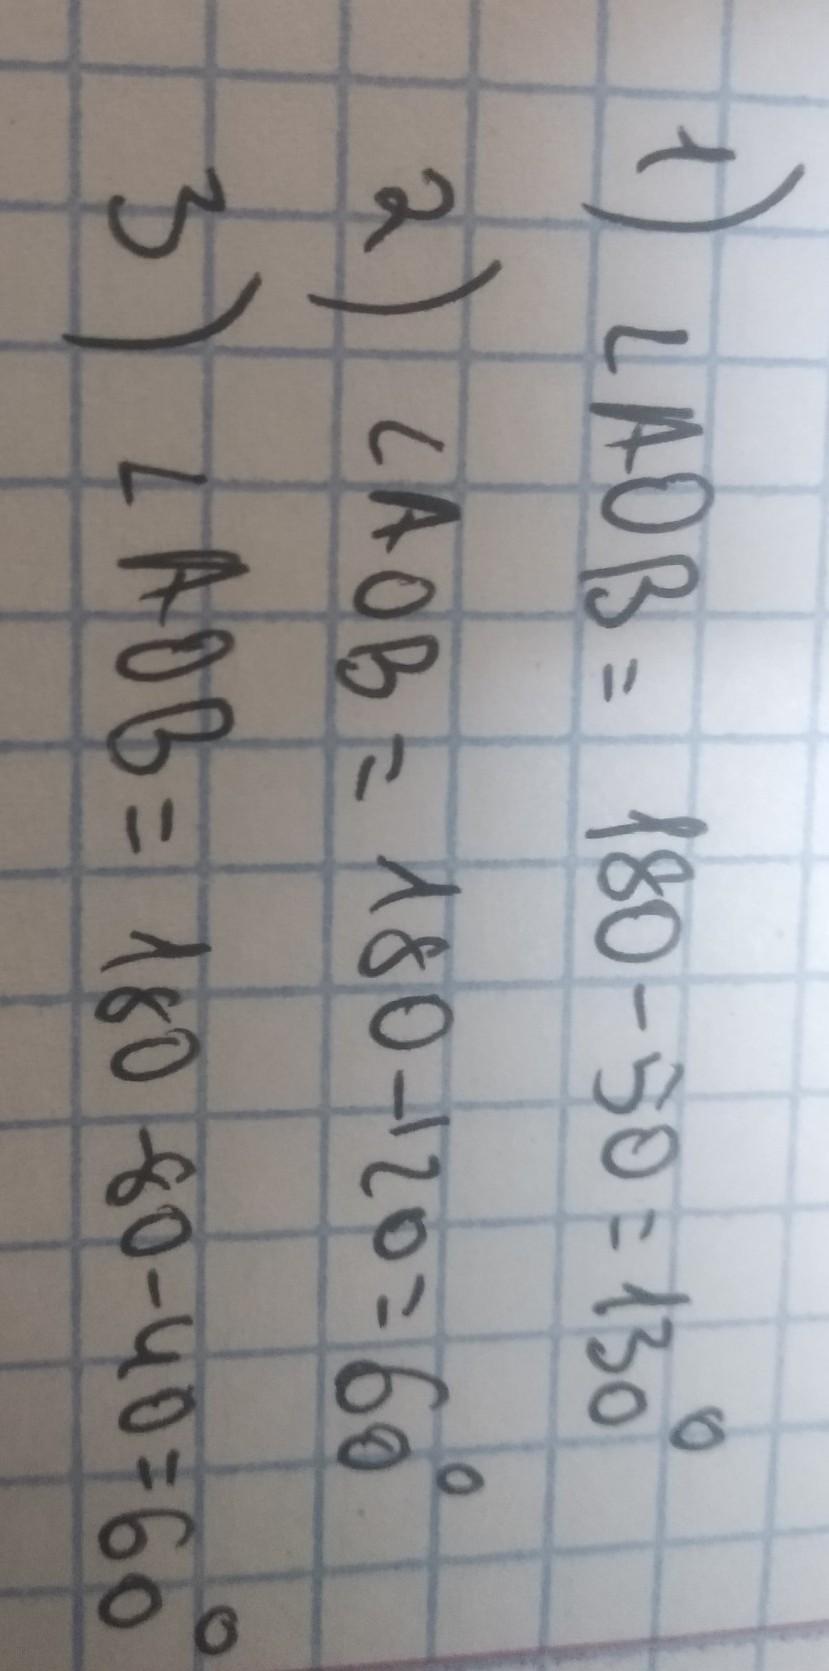 1) ∠AOB = 180-50=130°
2) ∠AOB = 180-120=60°
3) ∠AOB = 180-80-40=60°